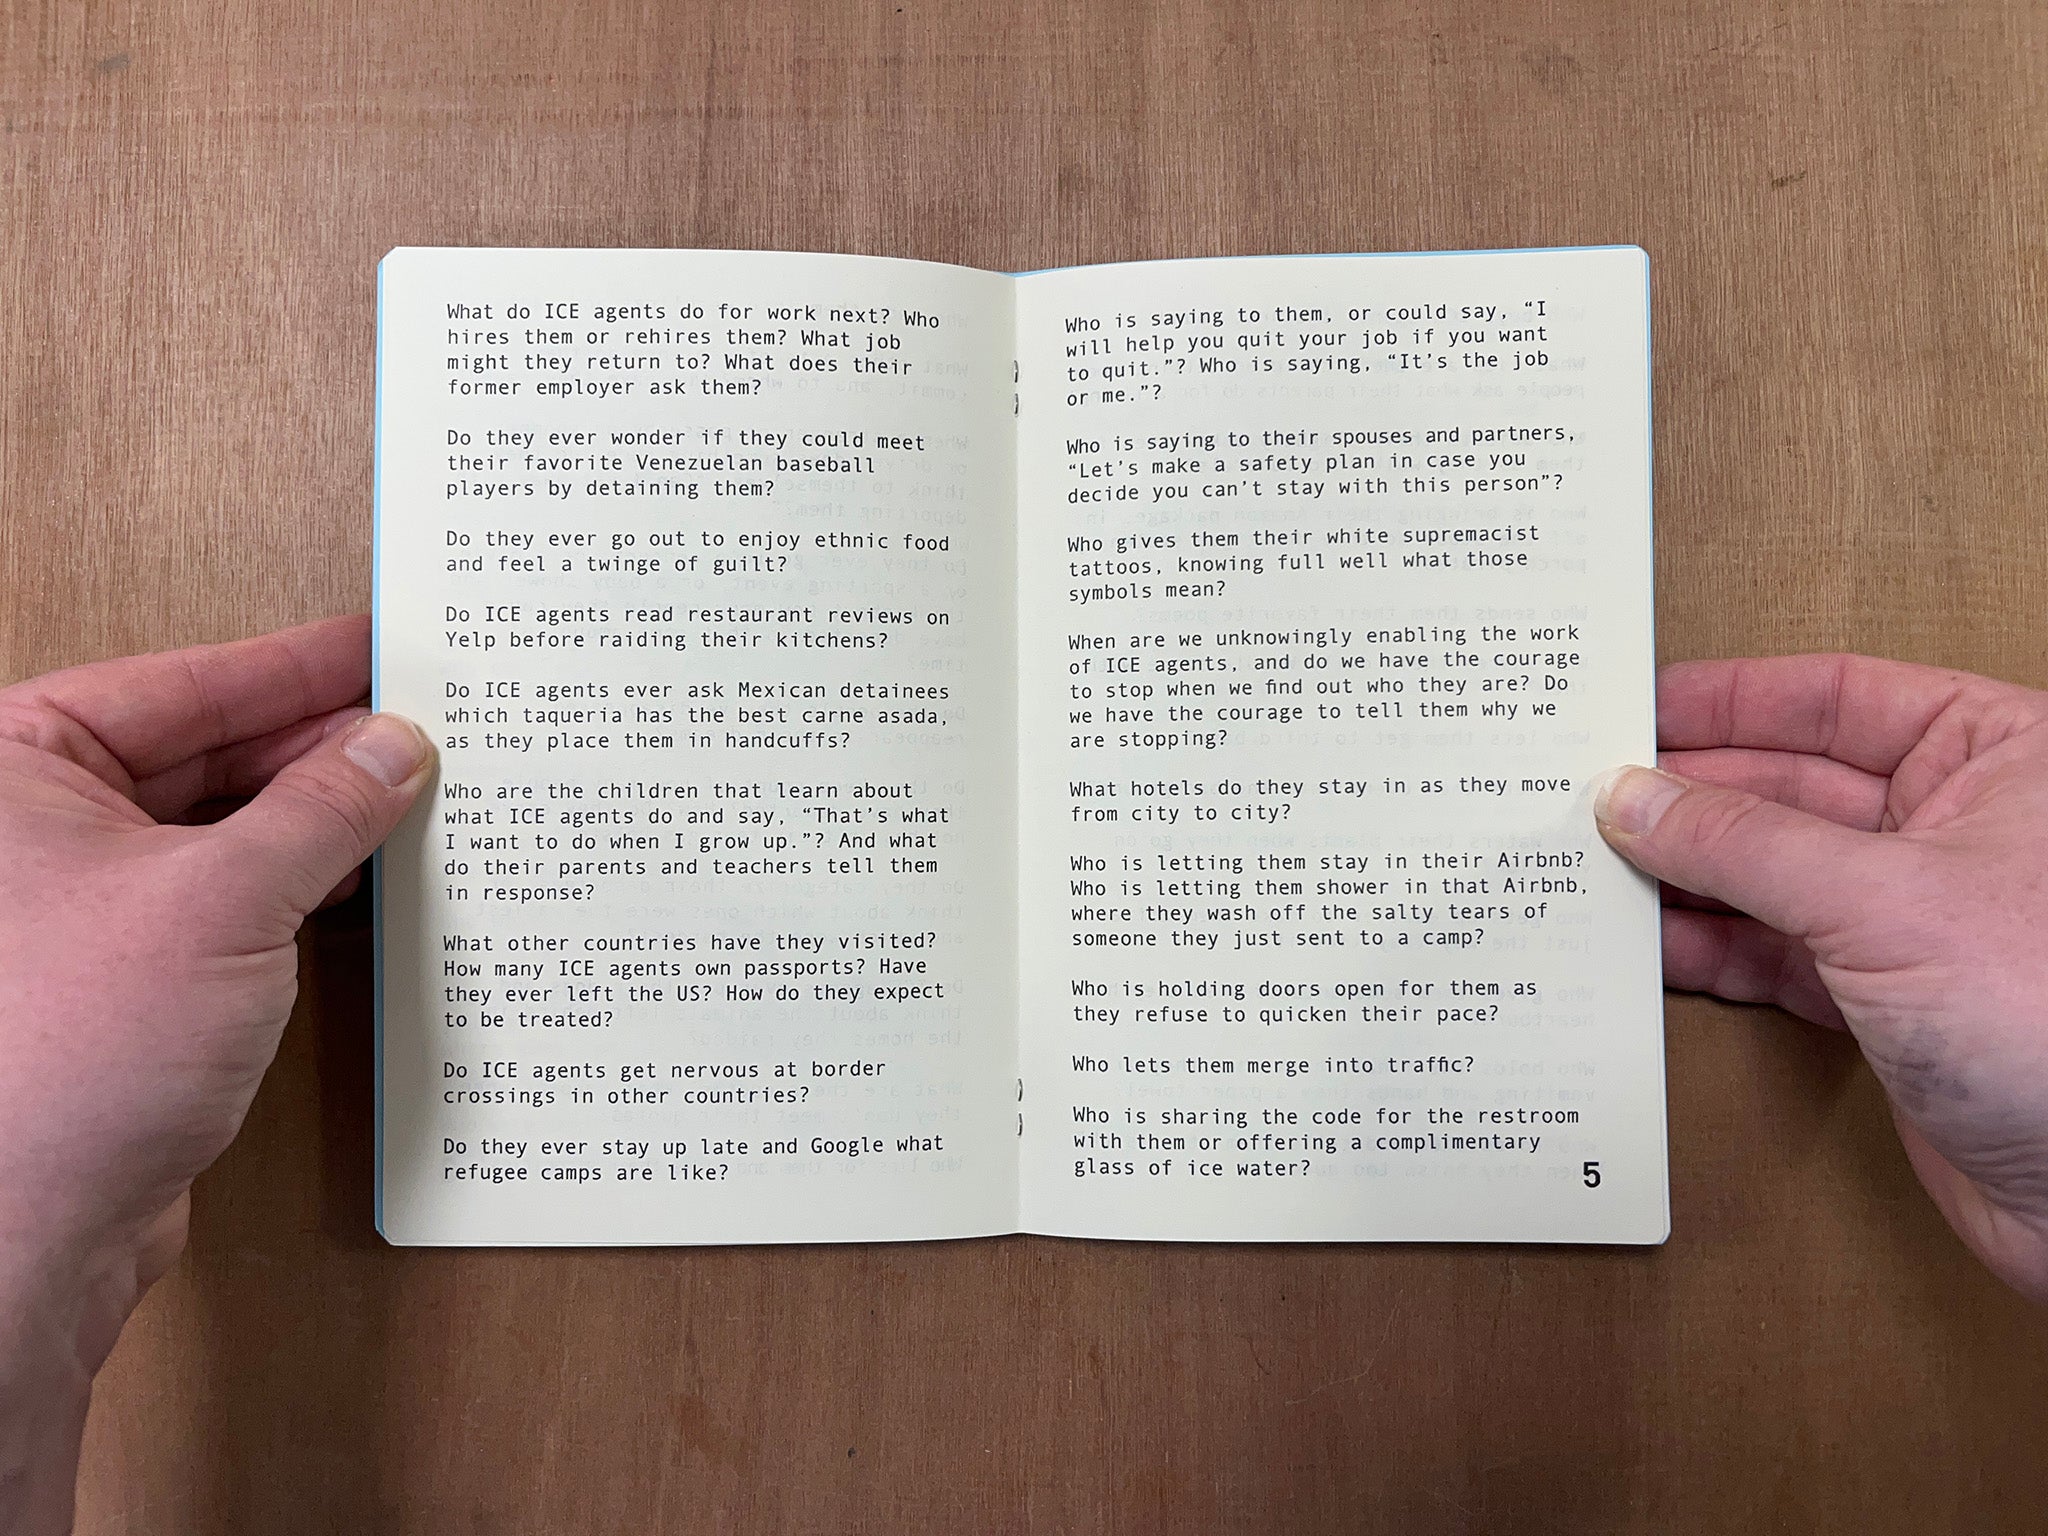 What do ICE agents do for work next? Who
hires them or rehires them? What job
might they return to? What does their
former employer ask them?
Do they ever wonder if they could meet
their favorite Venezuelan baseball
players by detaining them?
Do they ever go out to enjoy ethnic food
and feel a twinge of guilt?
Do ICE agents read restaurant reviews on
Yelp before raiding their kitchens?
Do ICE agents ever ask Mexican detainees
which taqueria has the best carne asada,
as they place them in handcuffs?
Who are the children that learn about
what ICE agents do and say, “That’s what
I want to do when I grow up.”? And what
do their parents and teachers tell them
in response?
What other countries have they visited?
How many ICE agents own passports? Have
they ever left the US? How do they expect
to be treated?
Do ICE agents get nervous at border
crossings in other countries?
Do they ever stay up late and Google what
refugee camps are like?
Who is saying to them, or could say, “I
will help you quit your job if you want
to quit.”? Who is saying, “It’s the job
or me.”?
Who is saying to their spouses and partners,
“Let’s make a safety plan in case you
decide you can’t stay with this person”?
Who gives them their white supremacist
tattoos, knowing full well what those
symbols mean?
When are we unknowingly enabling the work
of ICE agents, and do we have the courage
to stop when we find out who they are? Do
we have the courage to tell them why we
are stopping?
What hotels do they stay in as they move
from city to city?
Who is letting them stay in their Airbnb?
Who is letting them shower in that Airbnb,
where they wash off the salty tears of
someone they just sent to a camp?
Who is holding doors open for them as
they refuse to quicken their pace?
Who lets them merge into traffic?
Who is sharing the code for the restroom
with them or offering a complimentary
glass of ice water?
5